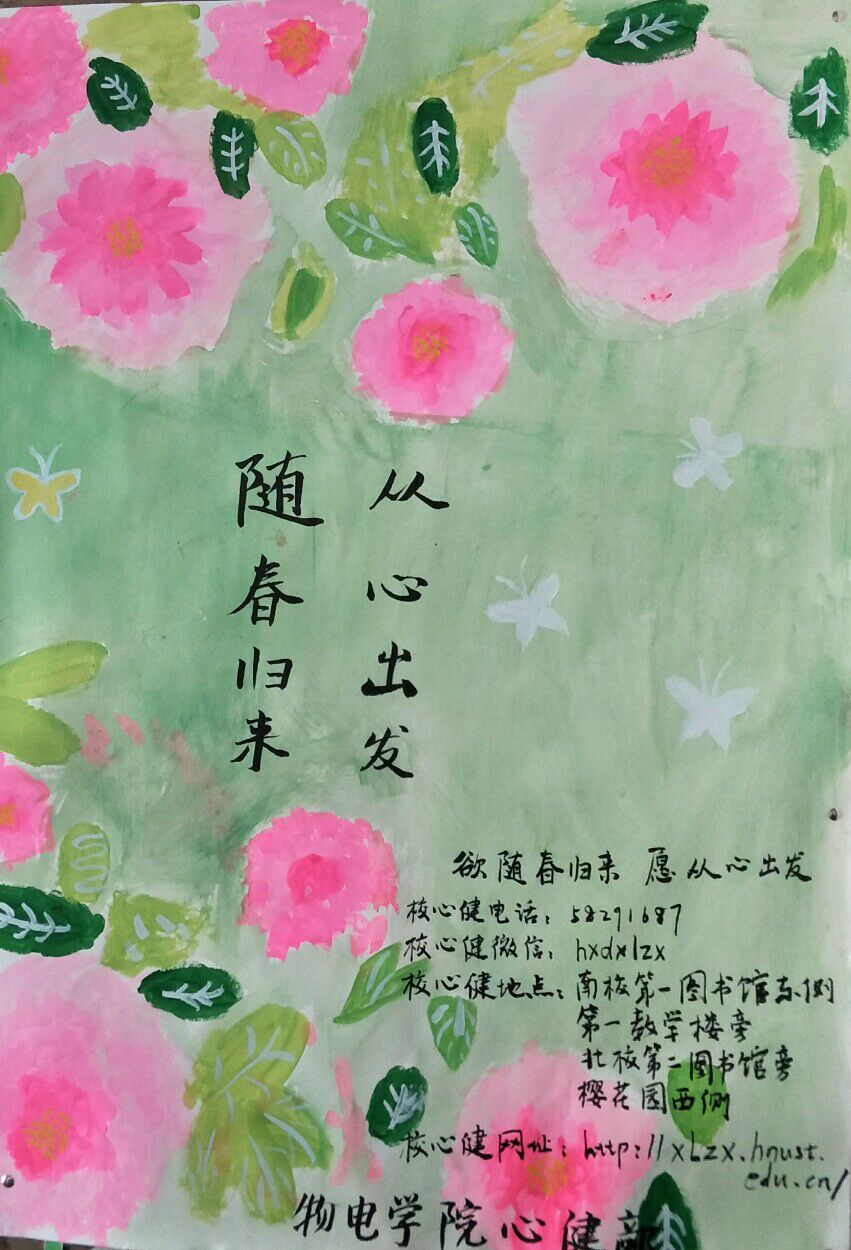 从心出发
随春归来
欲随春归来 愿从心出发
校心健电话：58291687
校心健微信：hxdxlzx
校心健地点：南校第一图书馆东侧
第一教学楼旁
北校第二图书馆旁
樱花园西侧
校心健网址：http://xlzx.hnust.
edu.cn/
物电学院心健部